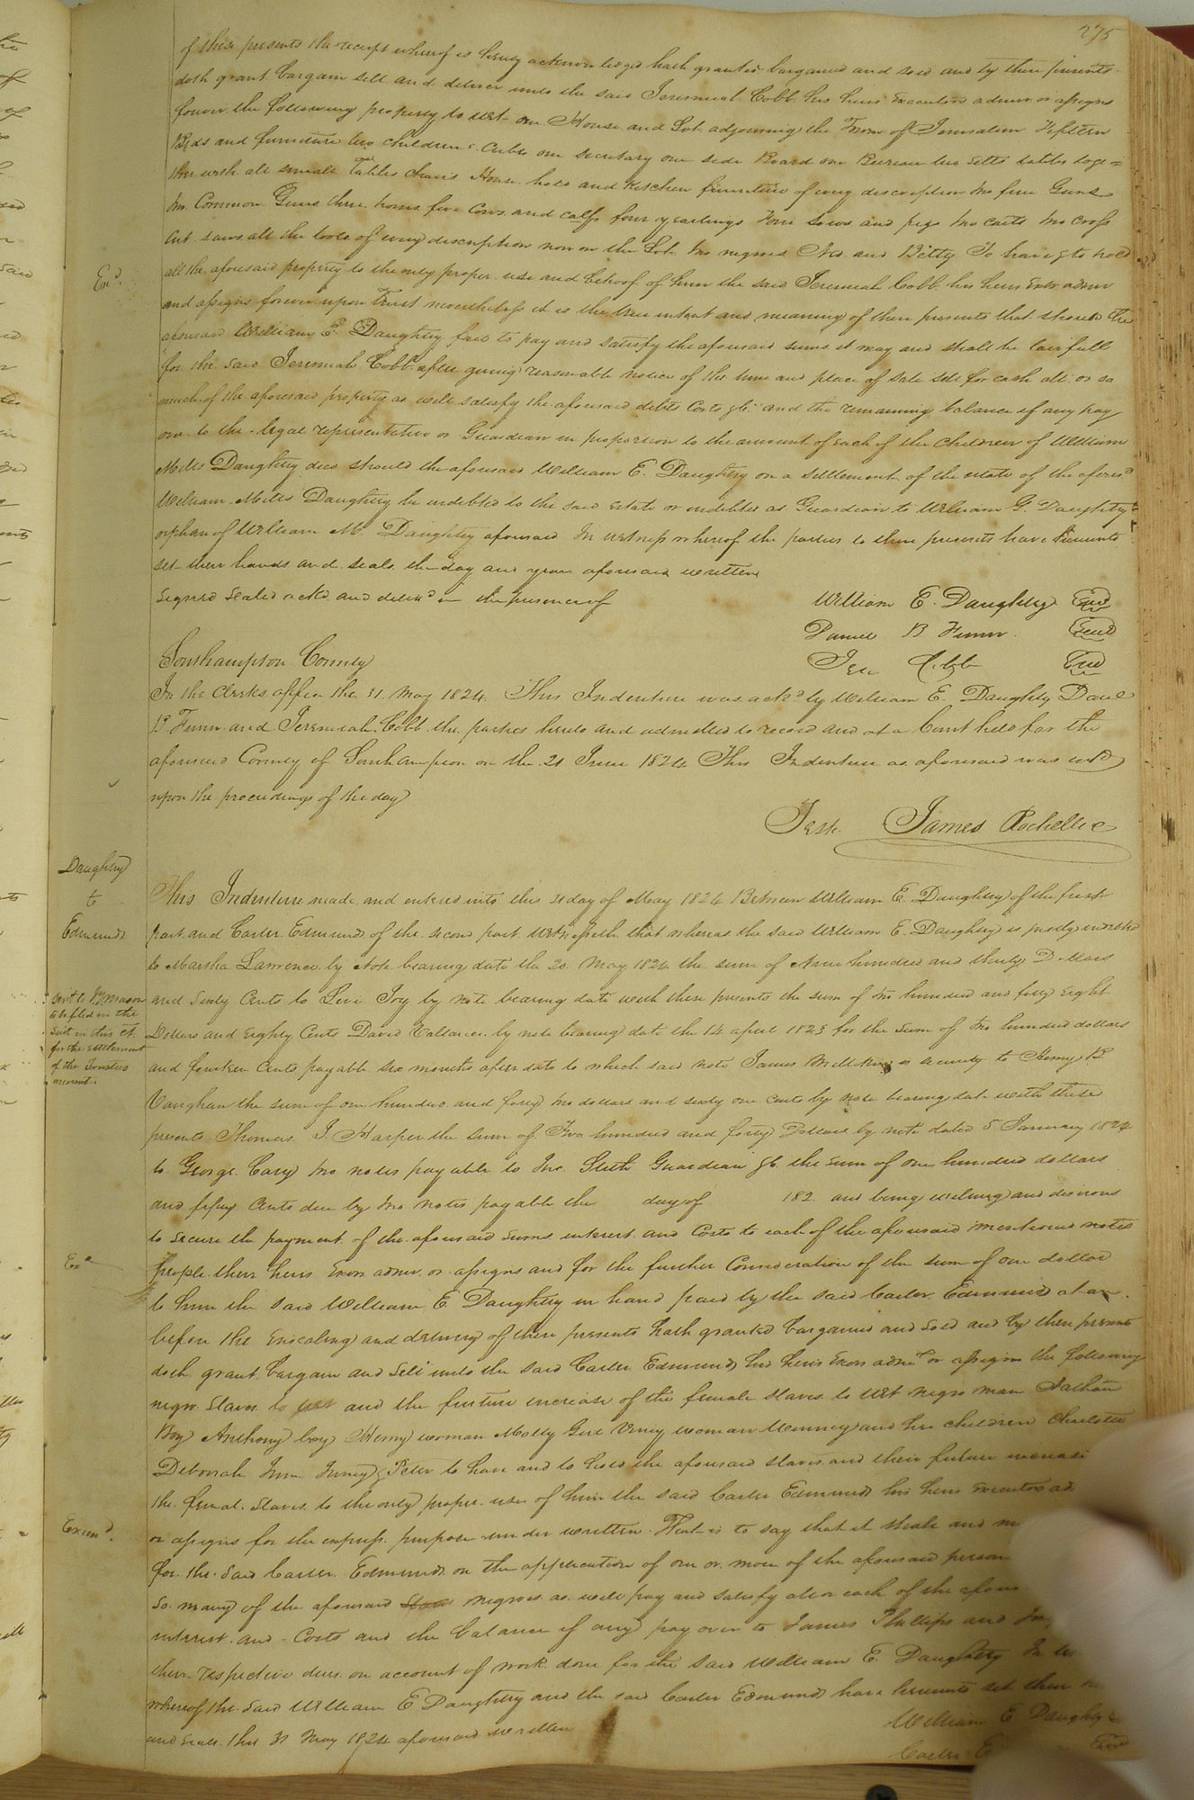 275
of these presents the receipt whereof is hereby acknowledged hath granted bargained and sold and by these presents
doth grant bargain sell and deliver unto the said Jeremiah Cobb his heirs executors admrs or assigns
forever the following property to wit one House and Lot adjoining the Town of Jerusalem fifteen
Beds and furniture two childrens Cribs one secretary one side Board one Bureau two setts tables toge=
ther with all small Tables chairs House hold and Kitchen furniture of every description two fine Guns
two Common Guns three horses five Cows and calfs four yearlings four sows and pigs two carts two cross
cut saws all the tools of every description now on the Lot two negroes and Betty To have & to hold
all the aforesaid property to the only proper use and behoof of him the said Jeremiah Cobb his heirs Exors admrs
and assigns forever upon Trust nevertheless it is the true intent and meaning of these presents that should the
aforesaid William E. Daughtry fail to pay and satisfy the aforesaid sums it may and shall be lawfull
for the said Jeremiah Cobb after giving reasonable notice of the time and place of sale sell for cash all or so
much of the aforesaid property as will satisfy the aforesaid debts Costs &c and the remaining balance if any pay
over to the legal representative or Guardian in proportion to the amount of each of the children of William
Mills Daughtry decd should the aforesaid William E. Daughtry on a settlement of the estate of the aforesd
William Mills Daughtry be indebted to the said estate or indebted as Guardian to William G. Daughtry
orphan of William M. Daughtry aforesaid In witness whereof the parties to these presents have hereunto
set their hands and seals the day and year aforesaid written
Signed sealed ackd and delivd in the presence of
William E. Daughtry Seal
B Seal
Jer Cobb Seal
Exd.
Southampton County
In the Clerks office the 31 May 1824. This Indenture was ackd by William E. Daughtry
B and Jeremiah Cobb the parties hereto and admitted to record and at a Court held for the
aforesaid County of Southampton on the 21 June 1824 This Indenture as aforesaid was
upon the proceedings of the day
Teste James Rochelle
Daughtry
to
Edmunds
This Indenture made and entered into this 31 day of May 1824 Between William E. Daughtry of the first
part and Carter Edmunds of the second part Witnesseth that whereas the said William E. Daughtry is justly indebted
to Martha Lawrence by Note bearing date the 20 May 1824 the sum of Nine hundred and thirty Dollars
and Sixty Cents to Levi Joy by note bearing date with these presents the sum of two hundred and fifty Eight
Dollars and Eighty Cents David by note bearing date the 14 april 1823 for the sum of two hundred dollars
and fourteen Cents payable six months after date to which said note James is security to Henry B
Vaughan the sum of one hundred and forty two dollars and sixty one cents by note bearing date with these
presents Thomas J Harper the sum of Two hundred and forty Dollars by note dated 5 January 1824
to George Cary two notes payable to Jno. Guardian &c the sum of one hundred dollars
and fifty Cents due by two notes payable the day of 182 and being willing and desirous
to secure the payment of the aforesaid sums interest and Costs to each of the aforesaid mentioned notes
people their heirs Exors admrs or assigns and for the further Consideration of the sum of one dollar
to him the said William E. Daughtry in hand paid by the said Carter Edmunds at or
before the Ensealing and delivery of these presents hath granted bargained and sold and by these presents
doth grant bargain and sell unto the said Carter Edmunds his heirs Exors admrs or assigns the following
negro Slaves to wit and the future increase of the female slaves to wit negro man Nathan
Boy Anthony boy Henry woman Molly Girl Viney woman and her children Charlotte
Deborah & Peter to have and to hold the aforesaid slaves and their future increase
the female slaves to the only proper use of him the said Carter Edmunds his heirs Executors ad
or assigns for the express purpose under written That is to say that it shall and m
for the said Carter Edmunds on the application of one or more of the aforesaid person
so many of the aforesaid negroes as will pay and satisfy all or each of the afores
interest and Costs and the balance if any pay over to James Phillips and
their respective dues on account of work done for the said William E. Daughtry In
whereof the said William E Daughtry and the said Carter Edmunds have hereunto set their
and seals this 31 May 1824 aforesaid written
William E Daughtry
Carter E
Exd.
Examd.
to be filed in the
suit in this Ct.
for the settlement
of the Trustees